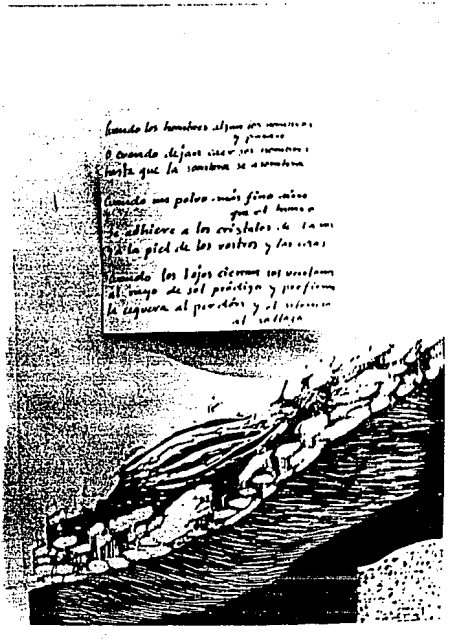 Cuando los hombres alzan los hombros
y pasan
o cuando dejan caer sus nombres
hasta que la sombra se asombra
Cuando un polvo más fino aún
que el humo
se adhiere a los cristales de la voz
y a la piel de los rostros y las cosas
Cuando los ojos cierran sus ventanas
al rayo de sol pródigo y prefieren
la ceguera al perdón y el silencio
al sollozo